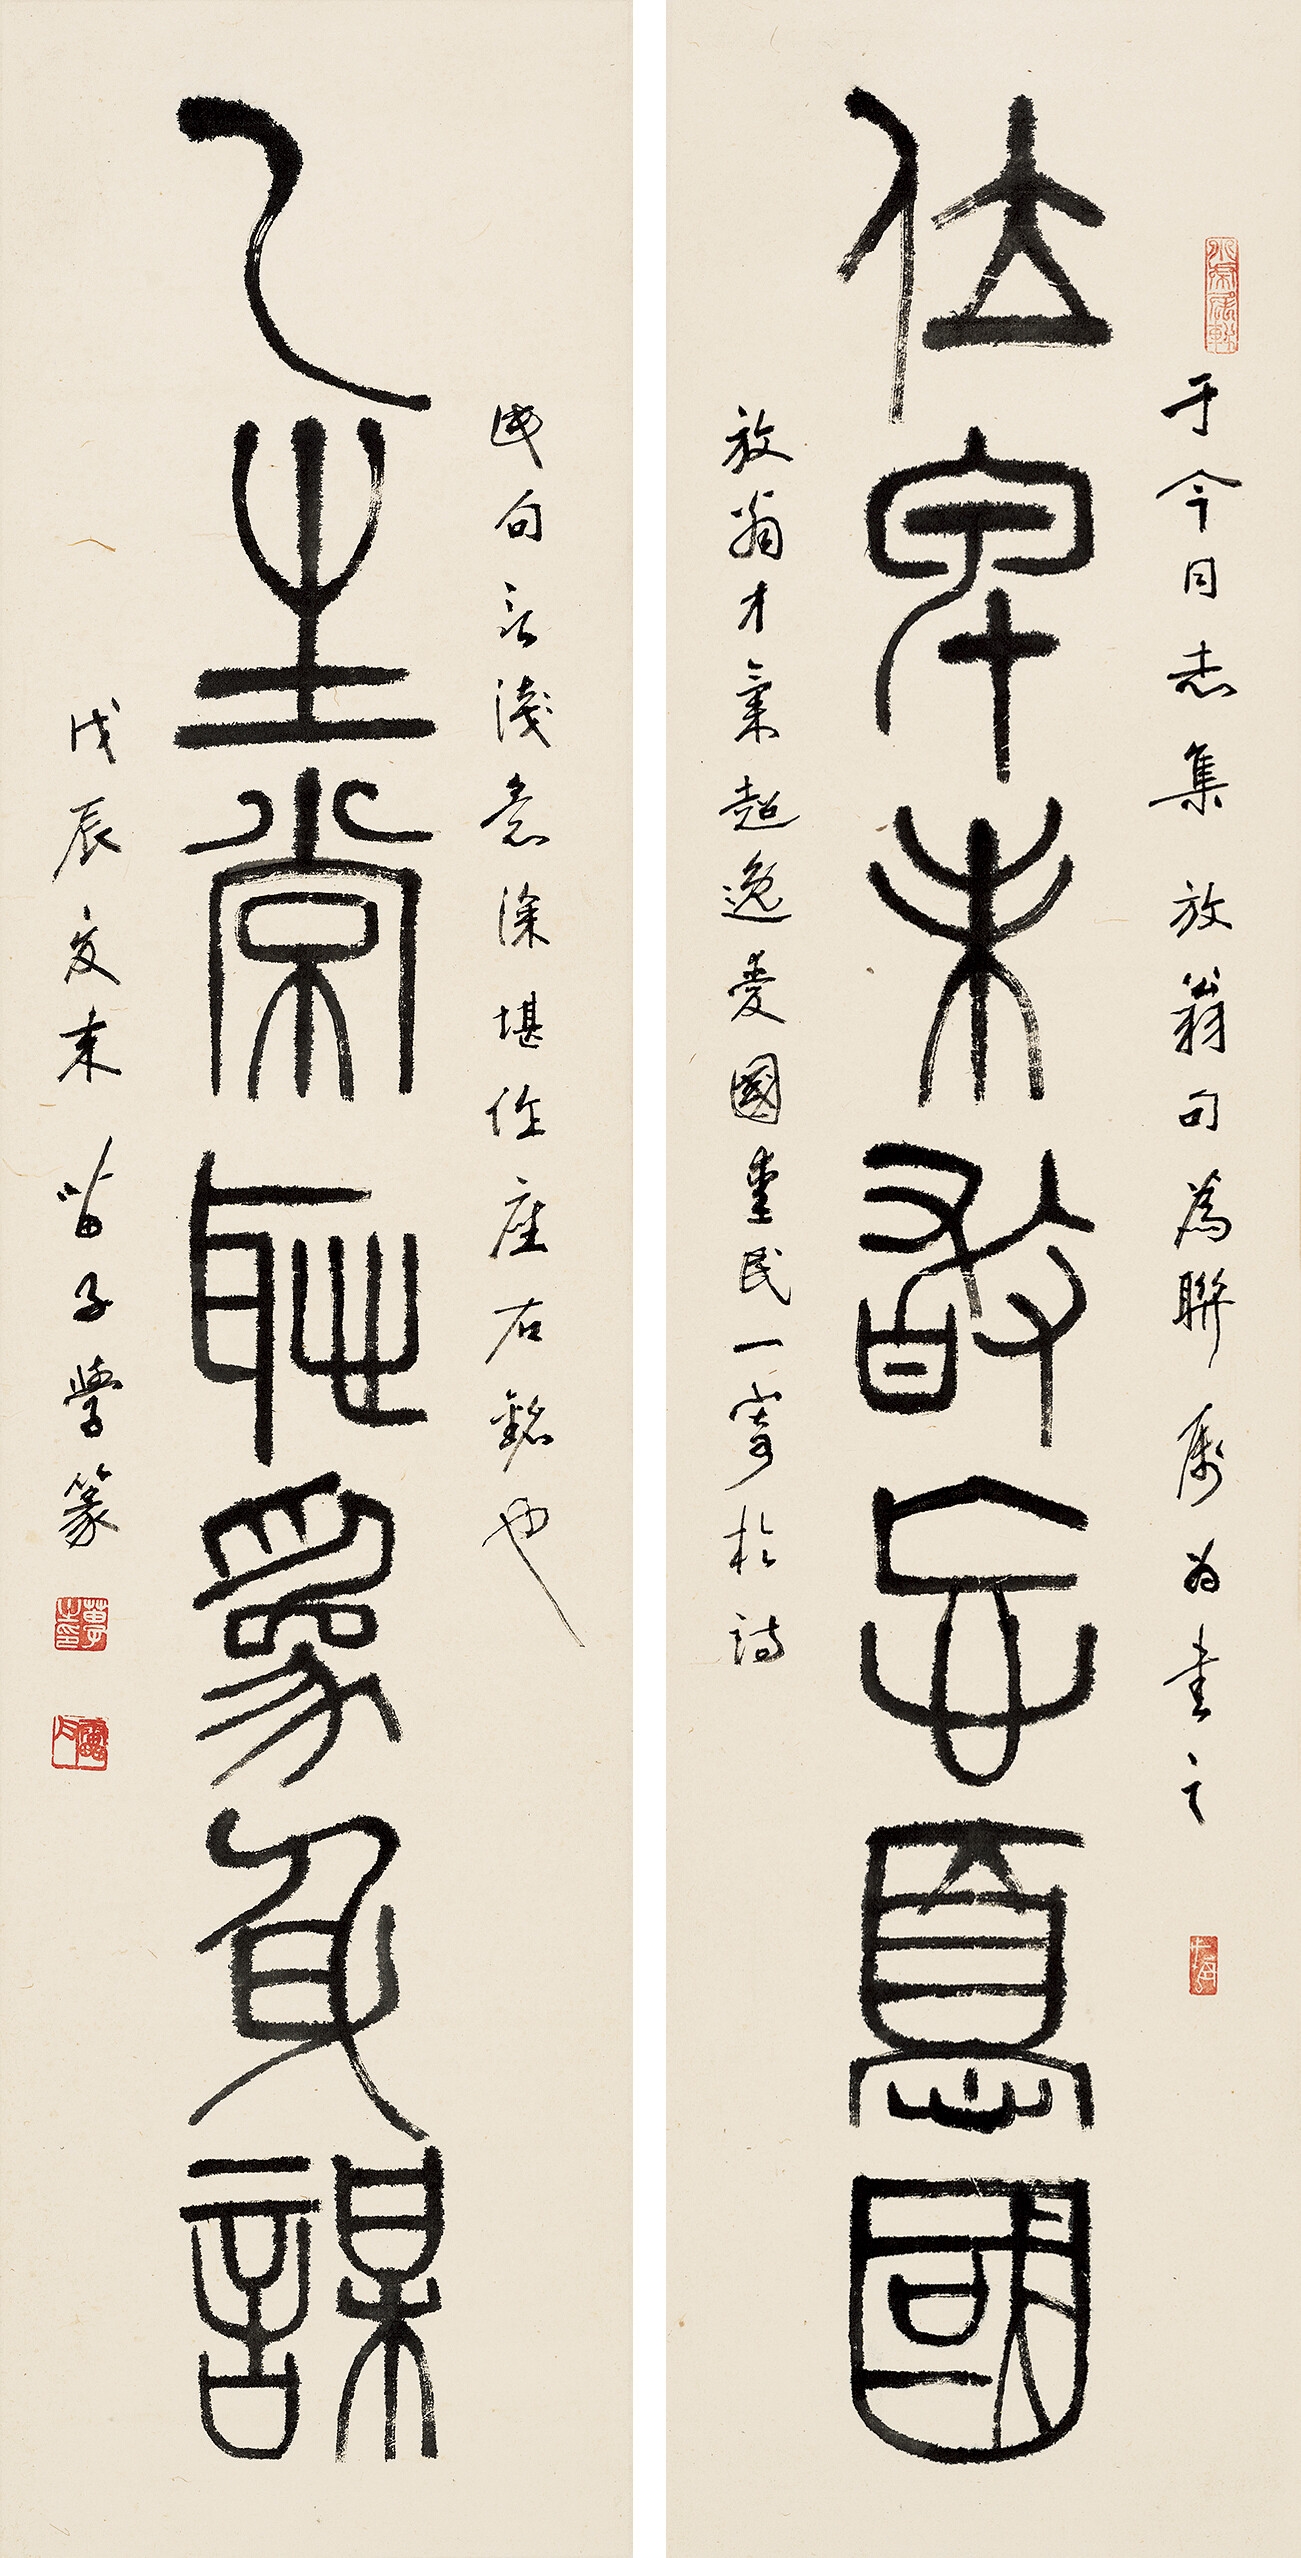 于今同志集放翁句為聯屬为書之
位卑未敢忘憂國
放翁才氣超逸愛國愛民一寄於詩
句言淺意深堪作座右銘也
乙生常恥為身謀
戊辰夏末苗子學篆